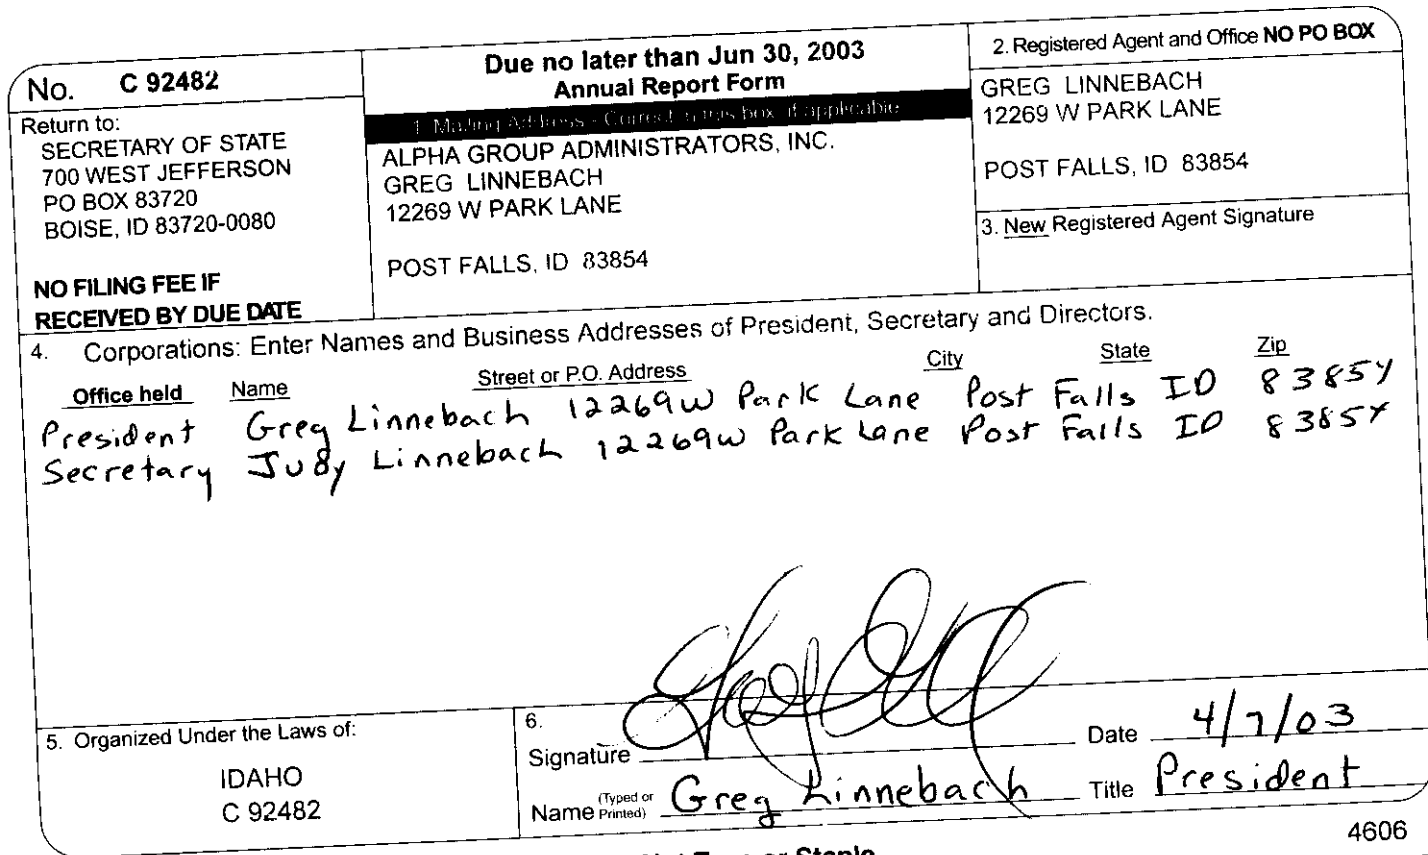 No. C 92482
Return to:
SECRETARY OF STATE
700 WEST JEFFERSON
PO BOX 83720
BOISE, ID 83720-0080
NO FILING FEE IF
RECEIVED BY DUE DATE
Due no later than Jun 30, 2003
Annual Report Form
1. Mailing Address - Correct in this box if applicable
ALPHA GROUP ADMINISTRATORS, INC.
GREG LINNEBACH
12269 W PARK LANE
POST FALLS, ID 83854
2. Registered Agent and Office NO PO BOX
GREG LINNEBACH
12269 W PARK LANE
POST FALLS, ID 83854
3. New Registered Agent Signature
4. Corporations: Enter Names and Business Addresses of President, Secretary and Directors.
Office held Name Street or P.O. Address City State Zip
President Greg Linnebach 12269 W Park Lane Post Falls ID 83854
Secretary Judy Linnebach 12269 W Park Lane Post Falls ID 83854
5. Organized Under the Laws of:
IDAHO
C 92482
6.
Signature Date 4/7/03
Name (Typed or Printed) Greg Linnebach Title President
4606